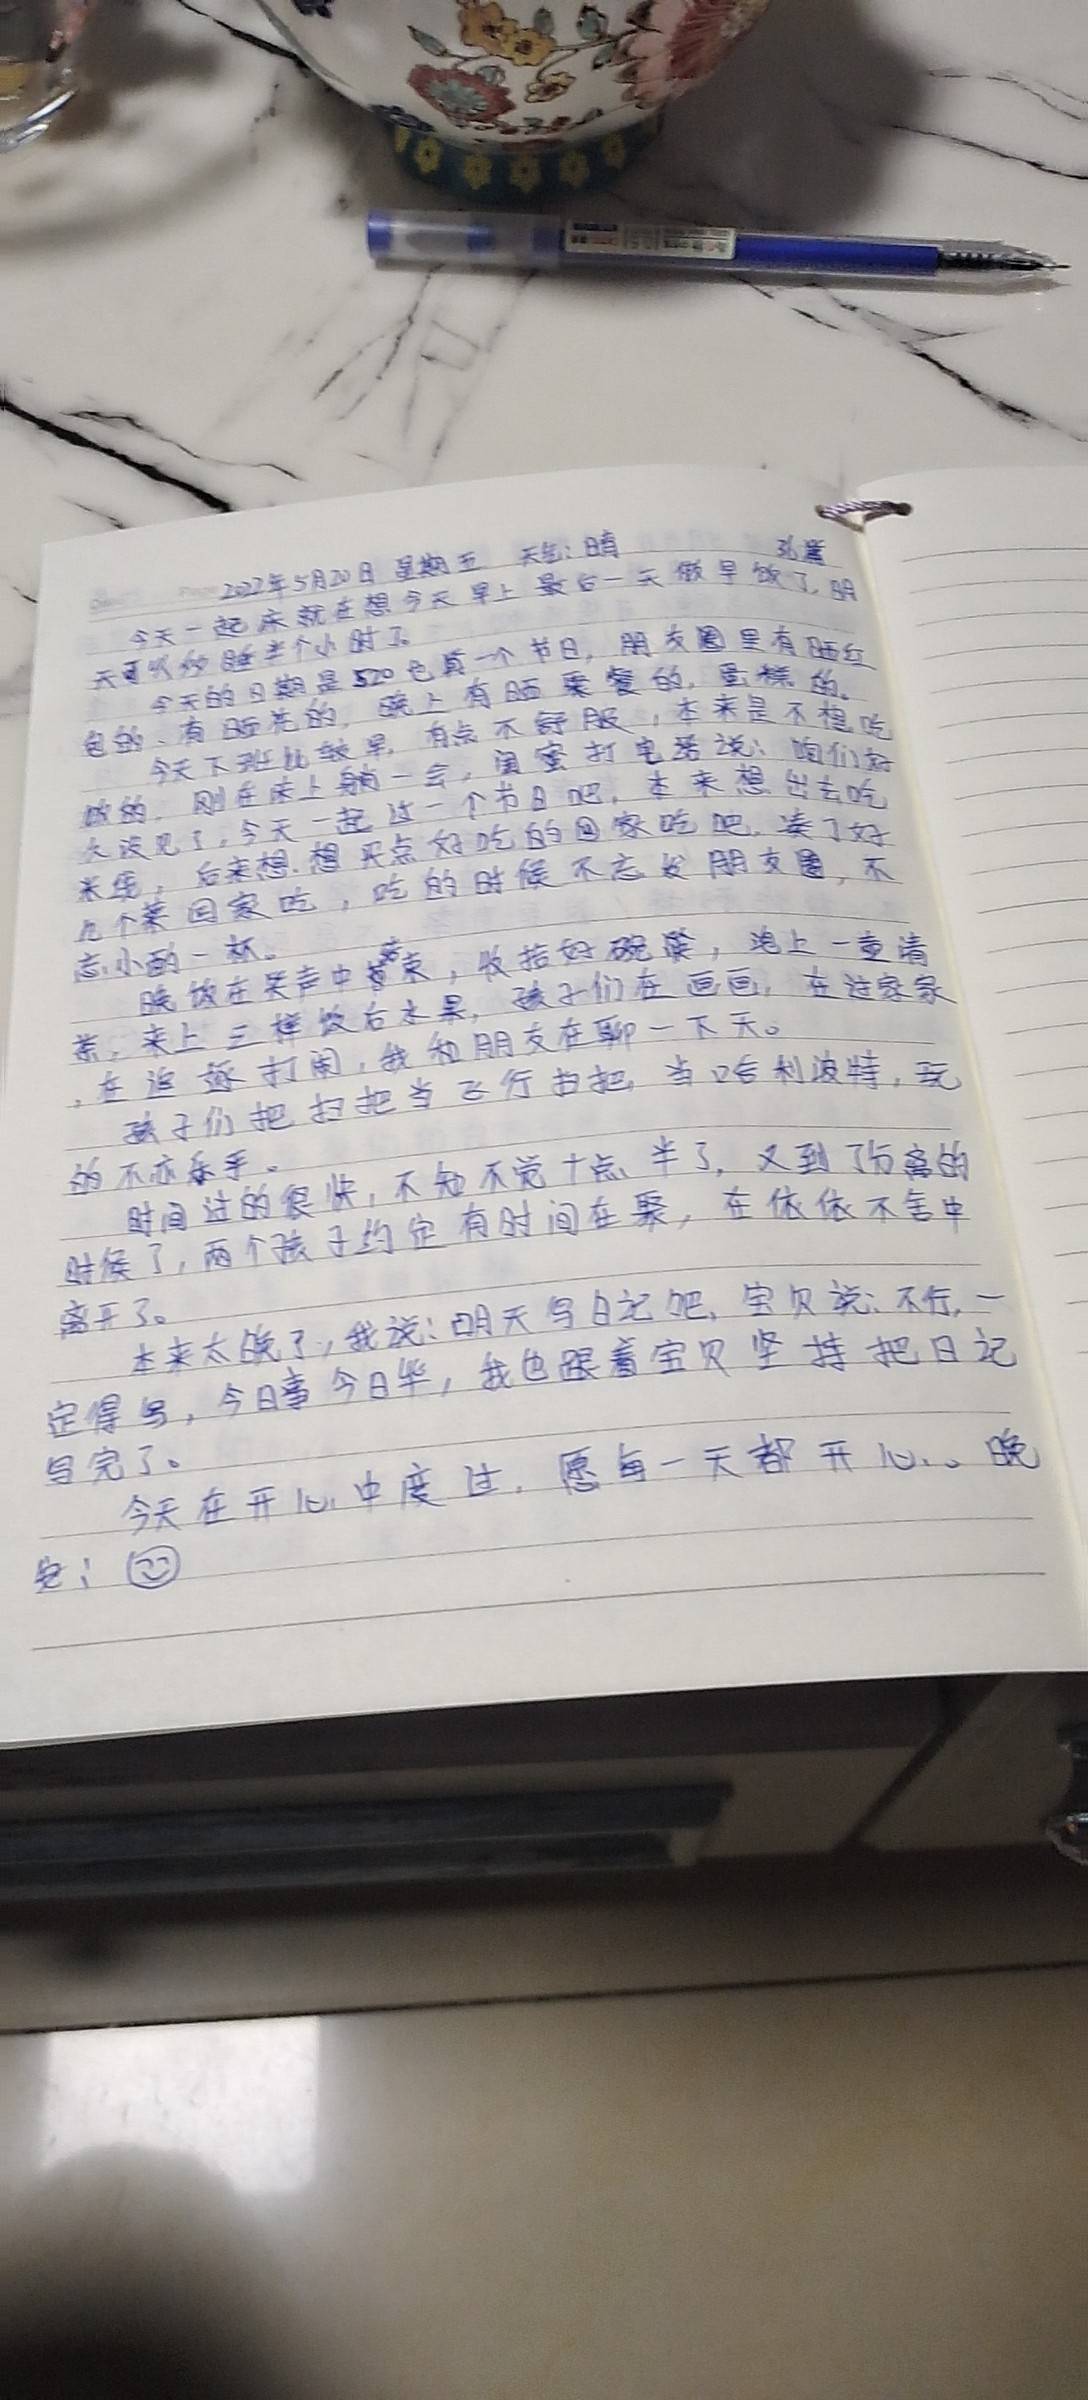 2022年5月20日 星期五 天气:晴
今天一起床就在想今天早上最后一天做早饭了,明
天可以多睡半个小时了。
今天的日期是520也算一个节日,朋友圈里有晒红
包的、有晒花的,晚上有晒聚餐的,蛋糕的。
今天下班比较早,有点不舒服,本来是不想吃
饭的,刚在床上躺一会,闺蜜打电话说:咱们好
久没见了,今天一起过一个节日吧,本来想出去吃
来,后来想.想买点好吃的回家吃吧.凑了好
几个菜回家吃,吃的时候不忘发朋友圈,不
忘小酌一杯。
晚饭在笑声中结束,收拾好碗筷,泡上一壶清
茶,来上三样饭后水果,孩子们在画画,在过家家
,在追逐打闹,我和朋友在聊一下天。
孩子们把扫把当飞行扫把,当哈利波特,玩
的不亦乐乎。
时间过的很快,不知不觉十点半了,又到了分离的
时候了,两个孩子约定有时间在聚,在依依不舍中
离开了。
本来太晚了,我说:明天写日记吧,宝贝说:不行,一
定得写,今日事今日毕,我也跟着宝贝坚持把日记
写完了。
今天在开心中度过,愿每一天都开心。晚
安!